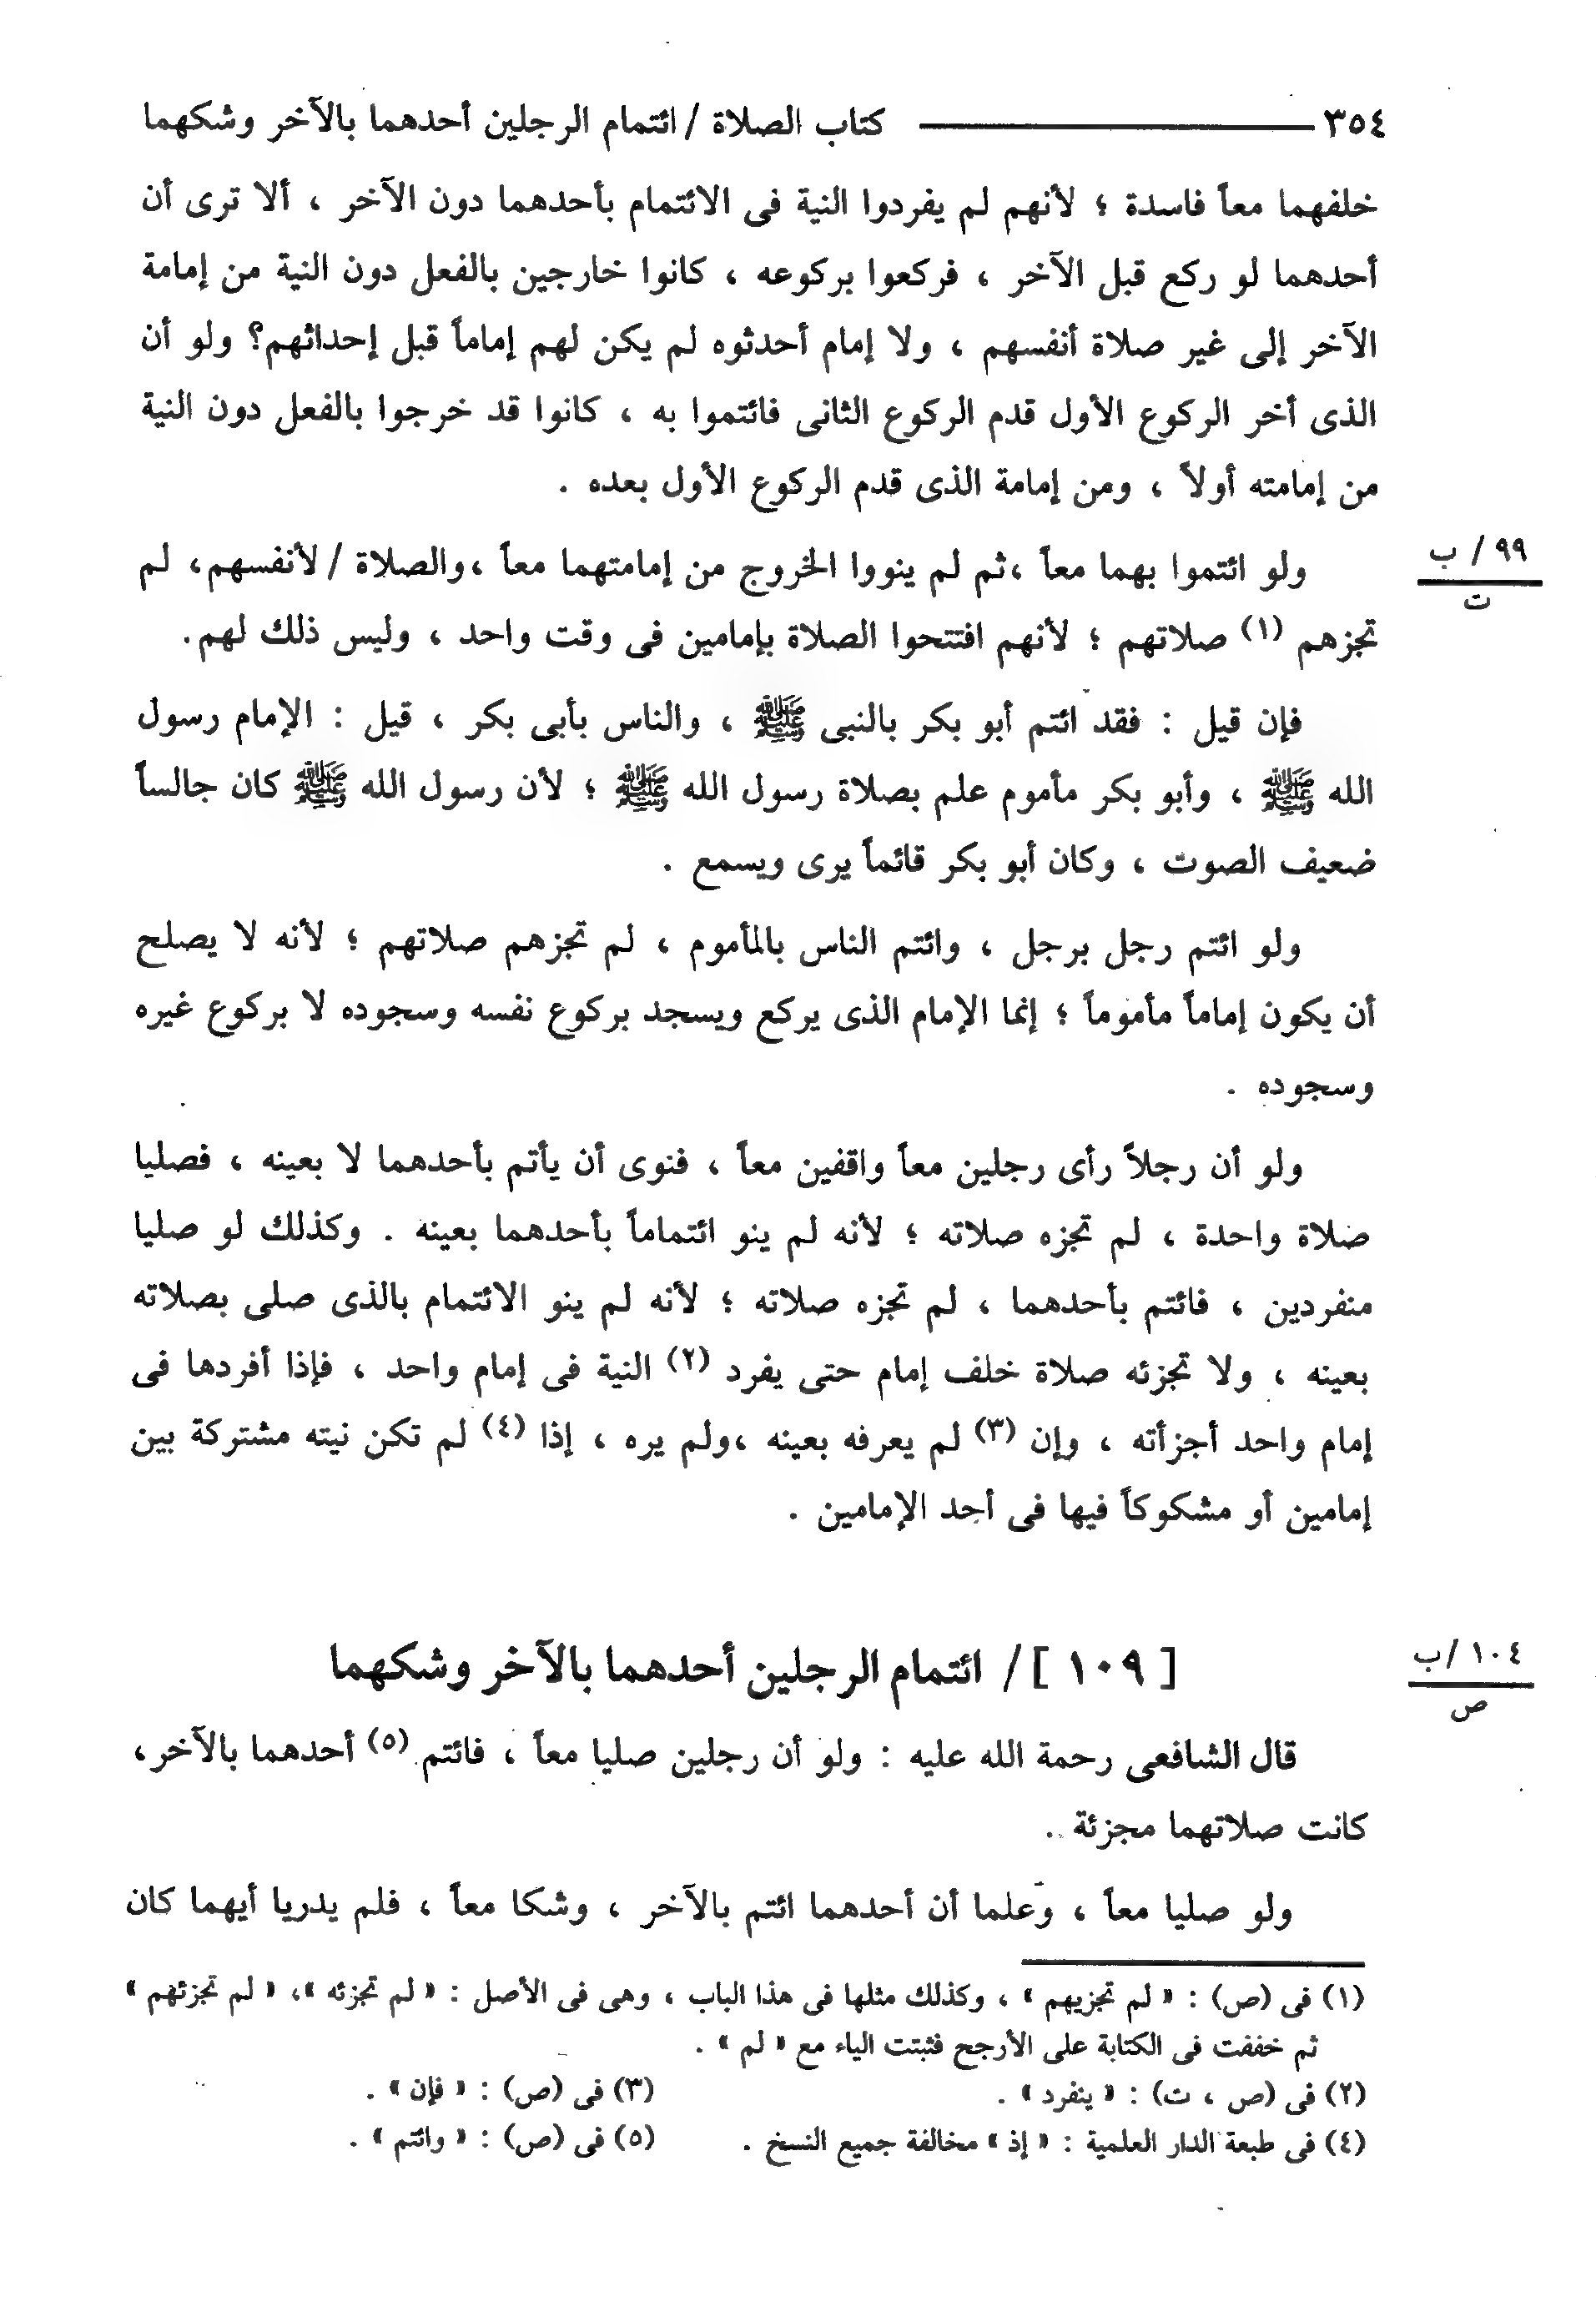 ٣٥٤ ــــــــــ كتاب الصلاة / ائتمام الرجلين أحدهما بالآخر وشكهما
خلفهما معاً فاسدة ؛ لأنهم لم يفردوا النية فى الائتمام بأحدهما دون الآخر ، ألا ترى أن
أحدهما لو ركع قبل الآخر ، فركعوا بركوعه ، كانوا خارجين بالفعل دون النية من إمامة
الآخر إلى غير صلاة أنفسهم ، ولا إمام أحدثوه لم يكن لهم إماماً قبل إحداثهم؟ ولو أن
الذى أخر الركوع الأول قدم الركوع الثانى فائتموا به ، كانوا قد خرجوا بالفعل دون النية
من إمامته أولاً ، ومن إمامة الذى قدم الركوع الأول بعده .
ولو ائتموا بهما معاً ،ثم لم ينووا الخروج من إمامتهما معاً ،والصلاة / لأنفسهم، لم
٩٩ / ب
ت
تجزهم (١) صلاتهم ؛ لأنهم افتتحوا الصلاة بإمامين فى وقت واحد ، وليس ذلك لهم.
فإن قيل : فقد ائتم أبو بكر بالنبى ﷺ ، والناس بأبى بكر ، قيل : الإمام رسول
الله ﷺ ، وأبو بكر مأموم علم بصلاة رسول الله ﷺ ؛ لأن رسول الله ﷺ كان جالساً
ضعيف الصوت ، وكان أبو بكر قائماً يرى ويسمع .
ولو ائتم رجل برجل ، وائتم الناس بالمأموم ، لم تجزهم صلاتهم ؛ لأنه لا يصلح
أن يكون إماماً مأموماً ؛ إنما الإمام الذى يركع ويسجد بركوع نفسه وسجوده لا بركوع غيره
وسجوده .
ولو أن رجلاً رأى رجلين معاً واقفين معاً ، فنوى أن يأتم بأحدهما لا بعينه ، فصليا
صلاة واحدة ، لم تجزه صلاته ؛ لأنه لم ينو ائتماماً بأحدهما بعينه . وكذلك لو صليا
منفردين ، فائتم بأحدهما ، لم تجزه صلاته ؛ لأنه لم ينو الائتمام بالذى صلى بصلاته
بعينه ، ولا تجزئه صلاة خلف إمام حتى يفرد (٢) النية فى إمام واحد ، فإذا أفردها فى
إمام واحد أجزأته ، وإن (٣) لم يعرفه بعينه ،ولم يره ، إذا (٤) لم تكن نيته مشتركة بين
إمامين أو مشكوكاً فيها فى أحد الإمامين .
[ ١٠٩ ] / ائتمام الرجلين أحدهما بالآخر وشكهما
١٠٤ /ب
ص
قال الشافعى رحمة الله عليه : ولو أن رجلين صليا معاً ، فائتم (٥) أحدهما بالآخر،
كانت صلاتهما مجزئة .
ولو صليا معاً ، وعلما أن أحدهما ائتم بالآخر ، وشكا معاً ، فلم يدريا أيهما كان
(١) فى (ص) : « لم تجزيهم » ، وكذلك مثلها فى هذا الباب ، وهى فى الأصل : « لم تجزئه »، « لم تجزئهم »
ثم خففت فى الكتابة على الأرجح فثبتت الياء مع « لم » .
(٢) فى (ص ، ت) : « ينفرد » . (٣) فى (ص) : « فإن » .
(٤) فى طبعة الدار العلمية : « إذ » مخالفة جميع النسخ . (٥) فى (ص) : « وائتم » .